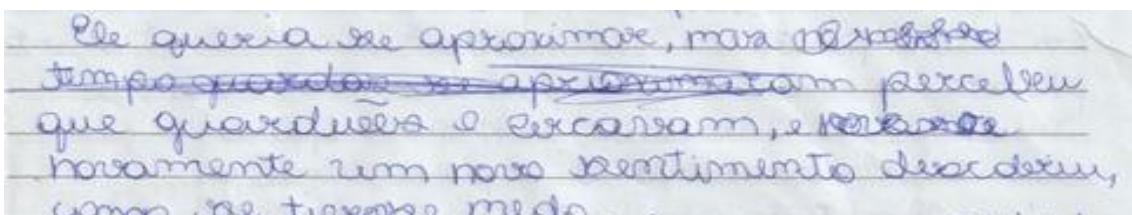 Ele queria se aproximar, mas no mesmo
tempo guardas se aproximaram percebeu
que guarduões o cercavam, e
novamente um novo sentimento descobriu,
como se tivesse medo